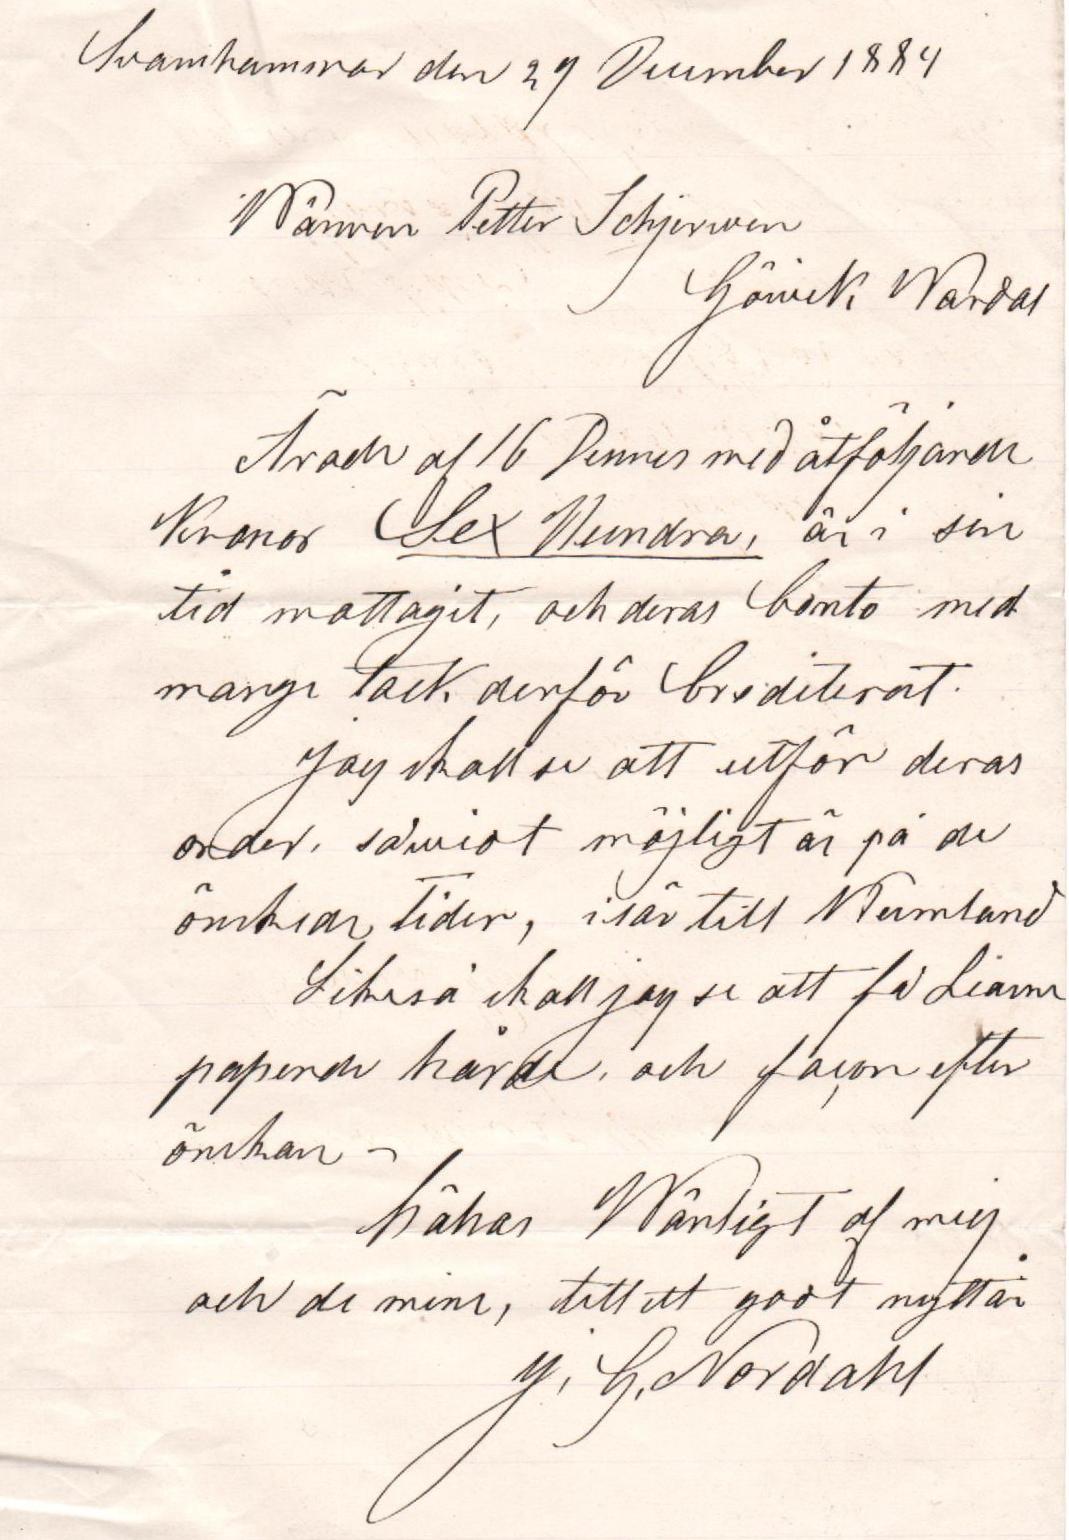 Svanhammar den 29 December 1884
Wännen Petter Schjerwen
Göiwik Wardal
Ärade af 16 Dennes med åtföljande
Kronor Sex Hundra, är i sin
tid mottagit, och deras Conto med
mange tack derför Crediterat.
Jag skall se att utför deras
order, såwiet möjligt är på de
önskede tider, isär till
Likeså skall jag se att få Liarne
paperede hårde, och façon efter
önskan –
hälsas Wänligt af mig
och de mine, till ett godt nyttår
J. G. Nordahl